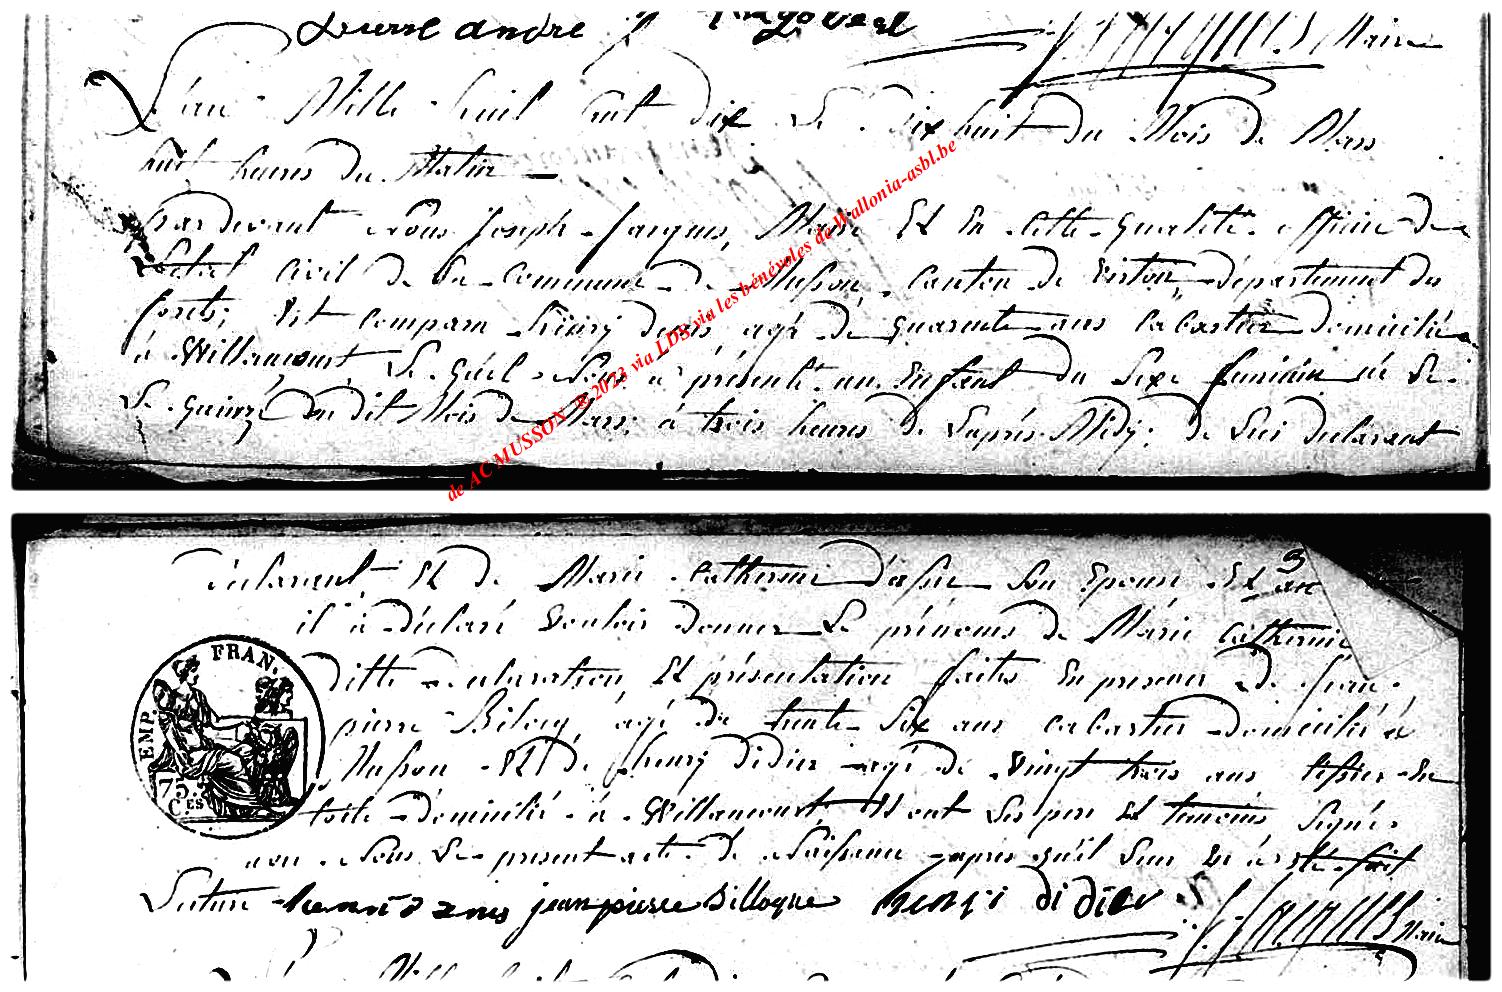 pierre andre Maire
L'an Mille huit Cent dix Le dix huit du Mois de Mars
huit heures du Matin
Pardevant Nous Joseph Jacques, Maire Et En Cette qualité officier de
L'état Civil de La Commune de Musson, Canton de Virton, département des
forêts; Est Comparu henry denis, agé de quarente ans Cabartier domicilié
à Willancourt Le quel Nous à présenté un Enfant du Sexe féminin né Le
Le quinze du dit Mois de Mars, à trois heures de L'après Midy; de Lui declarant
de AC MUSSON ® 2023 via LDS via les bénévoles de Wallonia-asbl.be
3
declarant Et de Marie Catherine Son Epouse Et au
il à déclaré Vouloir donner Le prénoms de Marie Catherine
FRAN.
EMP.
75.
C.ES
ditte declaration Et présentation faites En presence de Jean
pierre agé de trente Six ans Cabartier domicilié à
Musson Et de henry didier agé de Vingt trois ans tissier En
toile domicilié à Willancourt, Et ont Les pere Et temoins Signés
avec Nous Le present acte de Naissance après qu'il Leur En à Eté fait
Lecture henri denis jean pierre Billoque henri didier Jacques Maire